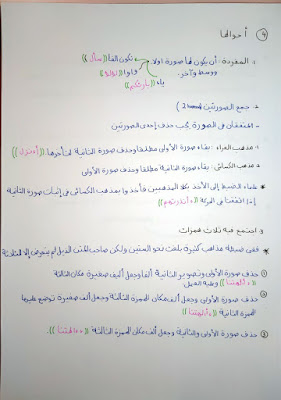 ④ أحوالها
١- المفردة: أن يكون لها صورة أولا ووسط وآخر.
تكون ألفا ((سأل))
واوا ((لؤلؤ))
ياء ((بارئكم))
٢- جمع الصورتين
- المتفقتان في الصورة يجب حذف إحدى الصورتين
١- مذهب الفراء: بقاء صورة الأولى مطلقا وحذف صورة الثانية لتأخرها
٢- مذهب الكسائي: بقاء صورة الثانية مطلقا وحذف صورة الأولى
* علماء الضبط إلى الأخذ بكلا المذهبين فأخذوا بمذهب الكسائي في إثبات صورة الثانية
إذا اتفقتا في الحركة ((ءأنذرتهم))
٣- اجتمع فيه ثلاث همزات
* ففي ضبطه مذاهب كثيرة بلغت نحو الستين ولكن صاحب المتن الذيل لم يتعرض إلا للثلاثة
① حذف صورة الأولى وتصوير الثانية ألفا وجعل ألف صغيرة مكان الثالثة
((ءأالهتنا)) وعليه العمل
② حذف صورة الأولى وجعل ألف مكان الهمزة الثالثة وجعل ألف صغيرة توضع عليها
الهمزة الثانية
③ حذف صورة الأولى والثانية وجعل ألف مكان الهمزة الثالثة